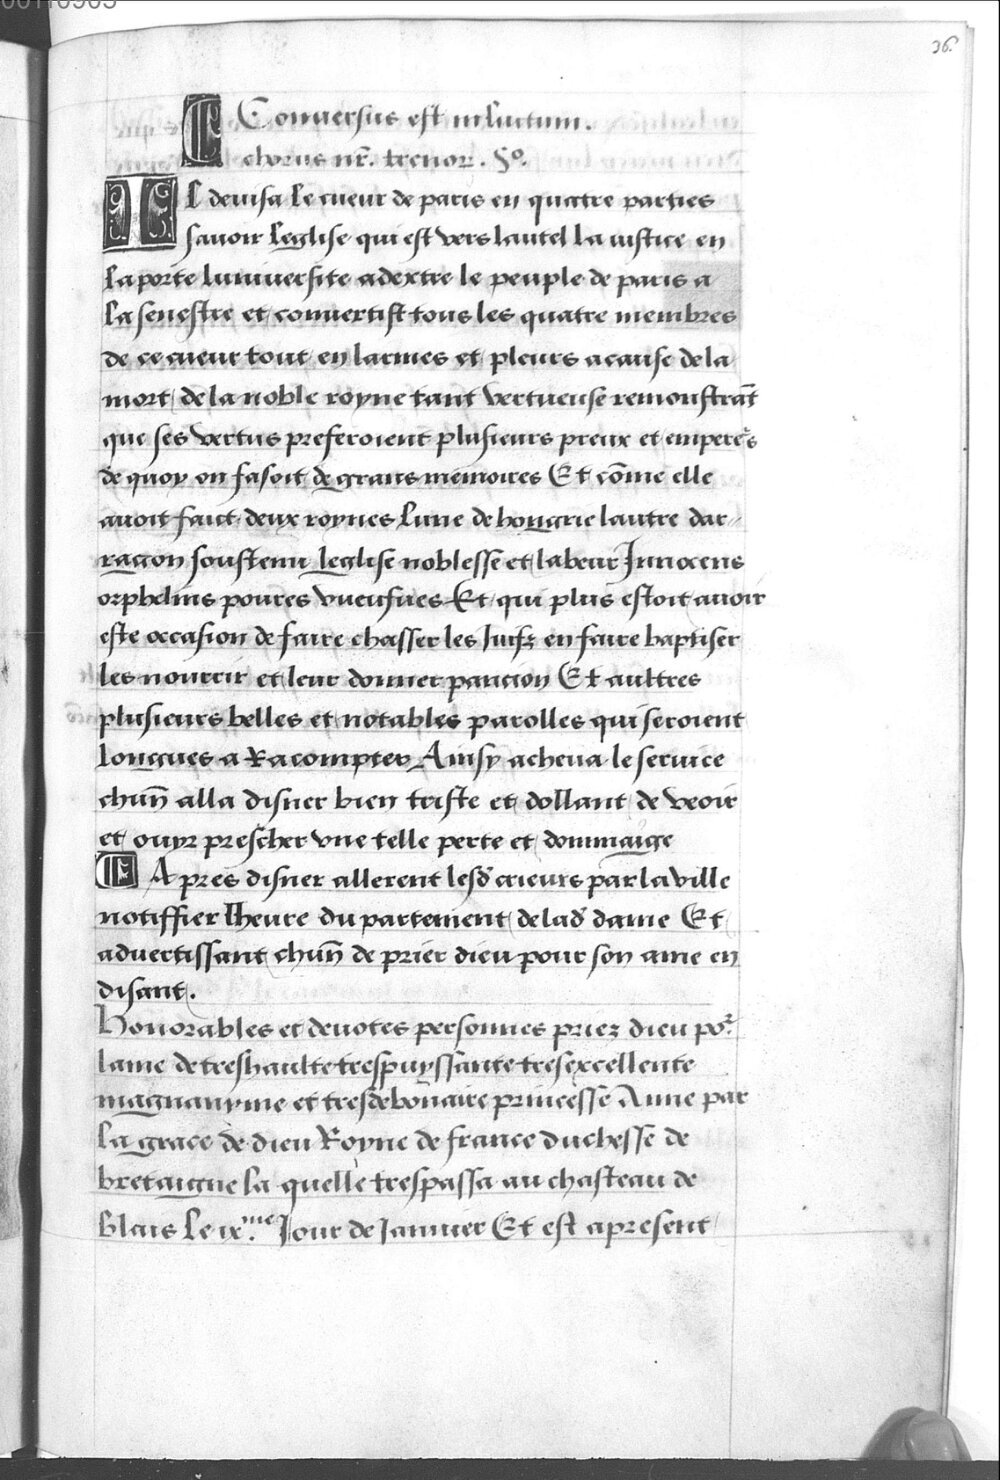 36.
Conuersus est in luctum.
chorus nr̄. trenor. Sº.
Il deuisa le cueur de paris en quatre parties
sauoir leglise qui est vers lautel la iustice en
la porte luniuersite a dextre le peuple de paris a
la senestre et conuertist tous les quatre membres
de ce cueur tout en larmes et pleurs a cause de la
mort de la noble royne tant vertueuse remonstrāt
que ses vertus preferoient plusieurs preux et emperes
de quoy on fasoit de grans memoires Et cōme elle
auoit faict deux roynes lune de hongrie lautre dar=
ragon soustenu leglise noblesse et labeur Innocens
orphelins poures vueufues Et qui plus estoit auoir
este occasion de faire chasser les Juifz en faire baptiser
les nourrir et leur donner pancion Et aultres
plusieurs belles et notables parolles qui seroient
longues a Racompter Ainsy acheua le seruice
chūn alla disner bien triste et dollant de veoir
et ouyr prescher vne telle perte et dommaige
Apres disner allerent lesd' crieurs par la ville
notiffier lheure du partement de lad' dame Et
aduertissant chūn de prier dieu pour son ame en
disant.
Honorables et deuotes personnes priez dieu por
lame de treshaulte trespuyssante tresexcellente
magnanyme et tresdebōnaire princesse Anne par
la grace de dieu Royne de france duchesse de
bretaigne la quelle trespassa au chasteau de
Blais le ix.me Jour de Januier Et est apresent